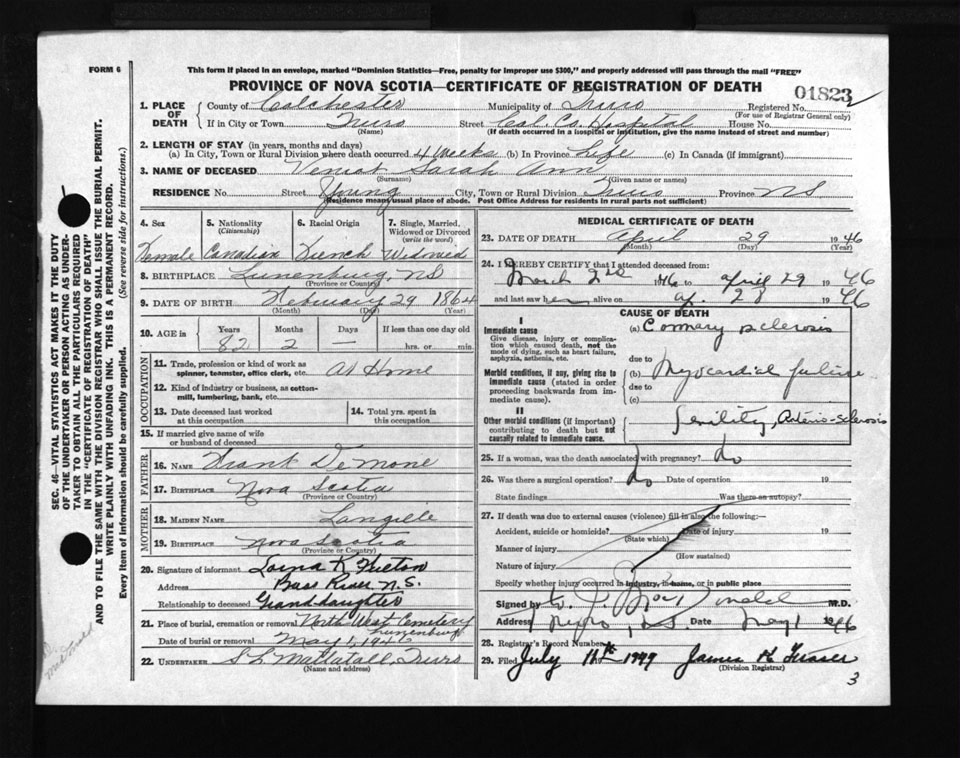 FORM 6
This form if placed in an envelope, marked "Dominion Statistics—Free, penalty for improper use $300," and properly addressed will pass through the mail "FREE"
PROVINCE OF NOVA SCOTIA—CERTIFICATE OF REGISTRATION OF DEATH
01823
1. PLACE OF DEATH County of Colchester Municipality of Truro Registered No.
(For use of Registrar General only)
If in City or Town Truro Street Col. Co. Hospital House No.
(Name) (If death occurred in a hospital or institution, give the name instead of street and number)
2. LENGTH OF STAY (in years, months and days)
(a) In City, Town or Rural Division where death occurred 4 Weeks (b) In Province Life (c) In Canada (if immigrant)
3. NAME OF DECEASED Veniot Sarah Ann
(Surname) (Given name or names)
RESIDENCE No. Street Young City, Town or Rural Division Truro Province NS
(Residence means usual place of abode. Post Office Address for residents in rural parts not sufficient)
4. Sex 5. Nationality (Citizenship) 6. Racial Origin 7. Single, Married, Widowed or Divorced (write the word)
Female Canadian Widowed
8. BIRTHPLACE Lunenburg, NS
(Province or Country)
9. DATE OF BIRTH February 29 1864
(Month) (Day) (Year)
10. AGE in Years Months Days If less than one day old
82 2 — hrs. or min.
OCCUPATION
11. Trade, profession or kind of work as spinner, teamster, office clerk, etc. At Home
12. Kind of industry or business, as cotton-mill, lumbering, bank, etc.
13. Date deceased last worked at this occupation
14. Total yrs. spent in this occupation
15. If married give name of wife or husband of deceased
FATHER
16. NAME Frank DeMone
17. BIRTHPLACE Nova Scotia
(Province or Country)
MOTHER
18. MAIDEN NAME Langille
19. BIRTHPLACE Nova Scotia
(Province or Country)
20. Signature of informant Lorna K Fulton
Address Bass River N.S.
Relationship to deceased Granddaughter
21. Place of burial, cremation or removal North West Cemetery
Lunenburg
Date of burial or removal May 1, 1946
22. UNDERTAKER S L Mattatall, Truro
(Name and address)
MEDICAL CERTIFICATE OF DEATH
23. DATE OF DEATH April 29 1946
(Month) (Day) (Year)
24. I HEREBY CERTIFY that I attended deceased from:
March 2nd 1946 to April 29 1946
and last saw her alive on Ap. 28 1946
CAUSE OF DEATH
I
Immediate cause
Give disease, injury or complication which caused death, not the mode of dying, such as heart failure, asphyxia, asthenia, etc.
(a) Coronary sclerosis
due to
Morbid conditions, if any, giving rise to immediate cause (stated in order proceeding backwards from immediate cause).
(b) Myocardial failure
due to
(c)
II
Other morbid conditions (if important) contributing to death but not causally related to immediate cause.
Senility, Arterio-sclerosis
25. If a woman, was the death associated with pregnancy? No
26. Was there a surgical operation? No Date of operation 19
State findings Was there an autopsy?
27. If death was due to external causes (violence) fill in also the following:—
Accident, suicide or homicide? Date of injury 19
(State which)
Manner of injury
(How sustained)
Nature of injury
Specify whether injury occurred in industry, in home, or in public place
Signed by M.D.
Address Truro, NS Date May 1 1946
28. Registrar's Record Number
29. Filed July 11th 1949 James K Fraser
(Division Registrar)
3
SEC. 46—VITAL STATISTICS ACT MAKES IT THE DUTY
OF THE UNDERTAKER OR PERSON ACTING AS UNDER-
TAKER TO OBTAIN ALL THE PARTICULARS REQUIRED
IN THE "CERTIFICATE OF REGISTRATION OF DEATH"
AND TO FILE THE SAME WITH THE DIVISION REGISTRAR WHO SHALL ISSUE THE BURIAL PERMIT.
WRITE PLAINLY WITH UNFADING INK. THIS IS A PERMANENT RECORD.
Every item of information should be carefully supplied. (See reverse side for instructions.)